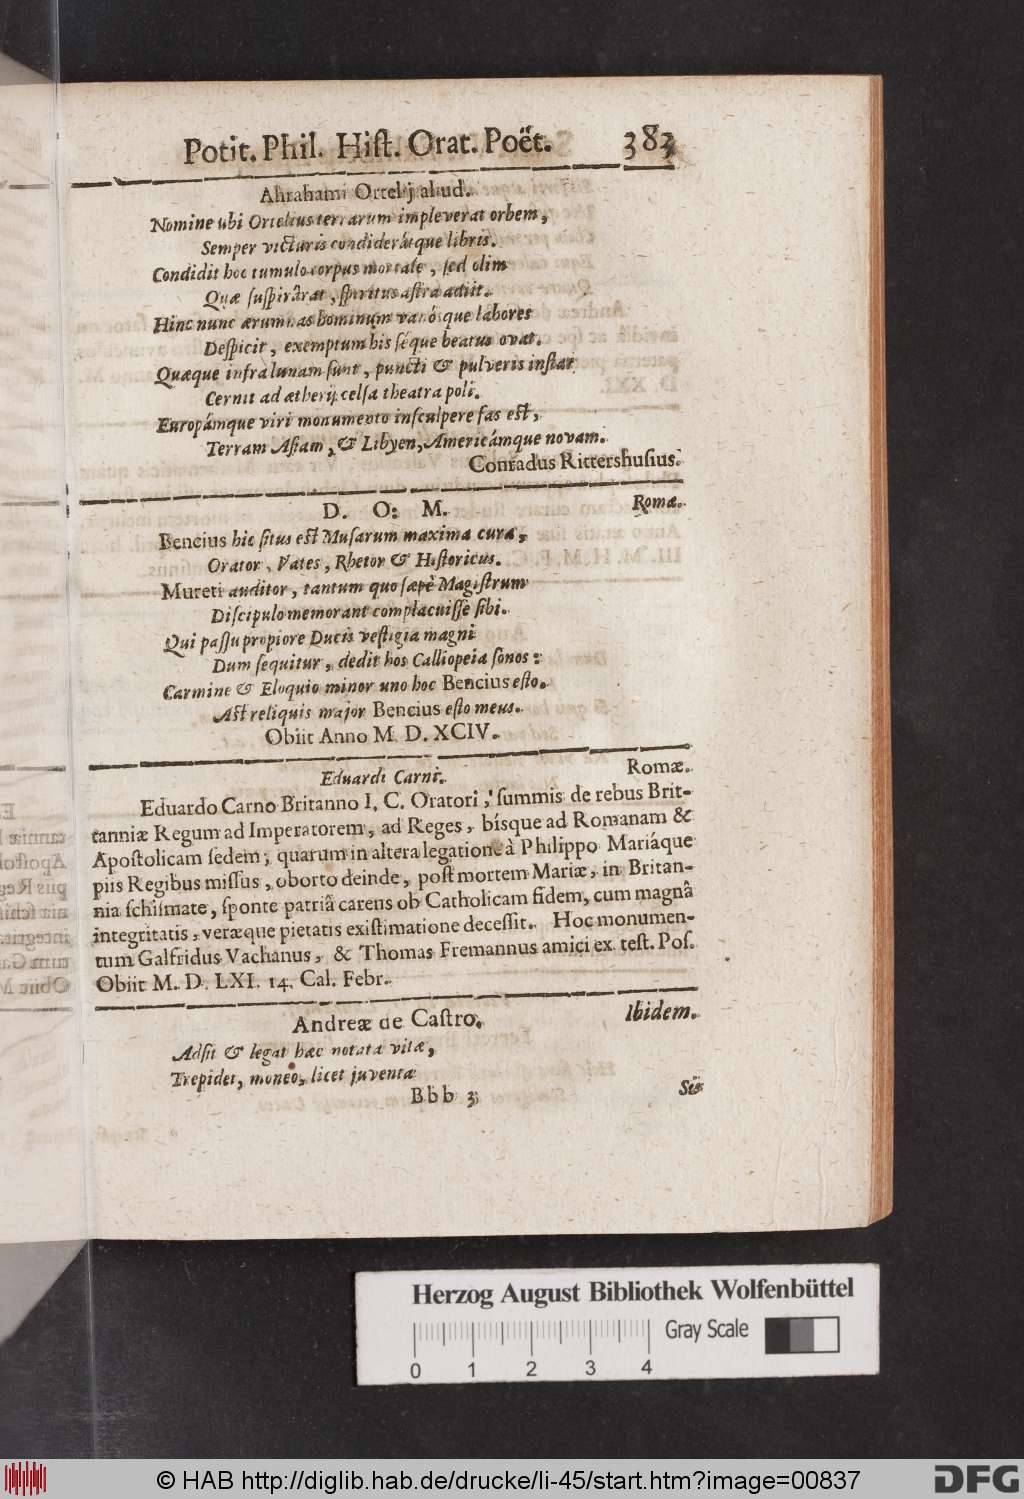 Potit. Phil. Hiſt. Orat. Poët. 383
Abrahami Ortelij aliud.
Nomine ubi Ortelius terrarum impleverat orbem,
Semper victuris condiderátque libris.
Condidit hoc tumulo corpus mortale, ſed olim
Quæ ſuſpirârat, ſpiritus aſtra adiit.
Hinc nunc ærumnas hominum variósque labores
Deſpicit, exemptum his ſéque beatus ovat.
Quæque infra lunam ſunt, puncti & pulveris inſtar
Cernit ad ætherij celſa theatra poli.
Európámque viri monumento inſculpere fas eſt,
Terram Aſiam, & Libyen, Americámque novam.
Conradus Rittershuſius.
D. O: M. Romæ.
Bencius hic ſitus eſt Muſarum maxima cura,
Orator, Vates, Rhetor & Hiſtoricus.
Mureti auditor, tantum quo ſæpè Magiſtrum
Diſcipulo memorant complacuiſſe ſibi.
Qui paſſu propiore Ducis veſtigia magni
Dum ſequitur, dedit hos Calliopeia ſonos:
Carmine & Eloquio minor uno hoc Bencius eſto.
Aſt reliquis major Bencius eſto meus.
Obiit Anno M. D. XCIV.
Eduardi Carni. Romæ.
Eduardo Carno Britanno I. C. Oratori, ſummis de rebus Brit-
tanniæ Regum ad Imperatorem, ad Reges, bísque ad Romanam &
Apoſtolicam ſedem; quarum in altera legatione à Philippo Mariáque
piis Regibus miſſus, oborto deinde, poſt mortem Mariæ, in Britan-
nia ſchiſmate, ſponte patriâ carens ob Catholicam fidem, cum magnâ
integritatis, veræque pietatis exiſtimatione deceſſit. Hoc monumen-
tum Galfridus Vachanus, & Thomas Fremannus amici ex teſt. Poſ.
Obiit M. D. LXI. 14. Cal. Febr.
Andreæ de Caſtro. Ibidem.
Adſit & legat hæc notata vitæ,
Trepidet, moneo, licet juventæ
Bbb 3 Sit
Herzog August Bibliothek Wolfenbüttel
Gray Scale
0 1 2 3 4
© HAB http://diglib.hab.de/drucke/li-45/start.htm?image=00837
DFG